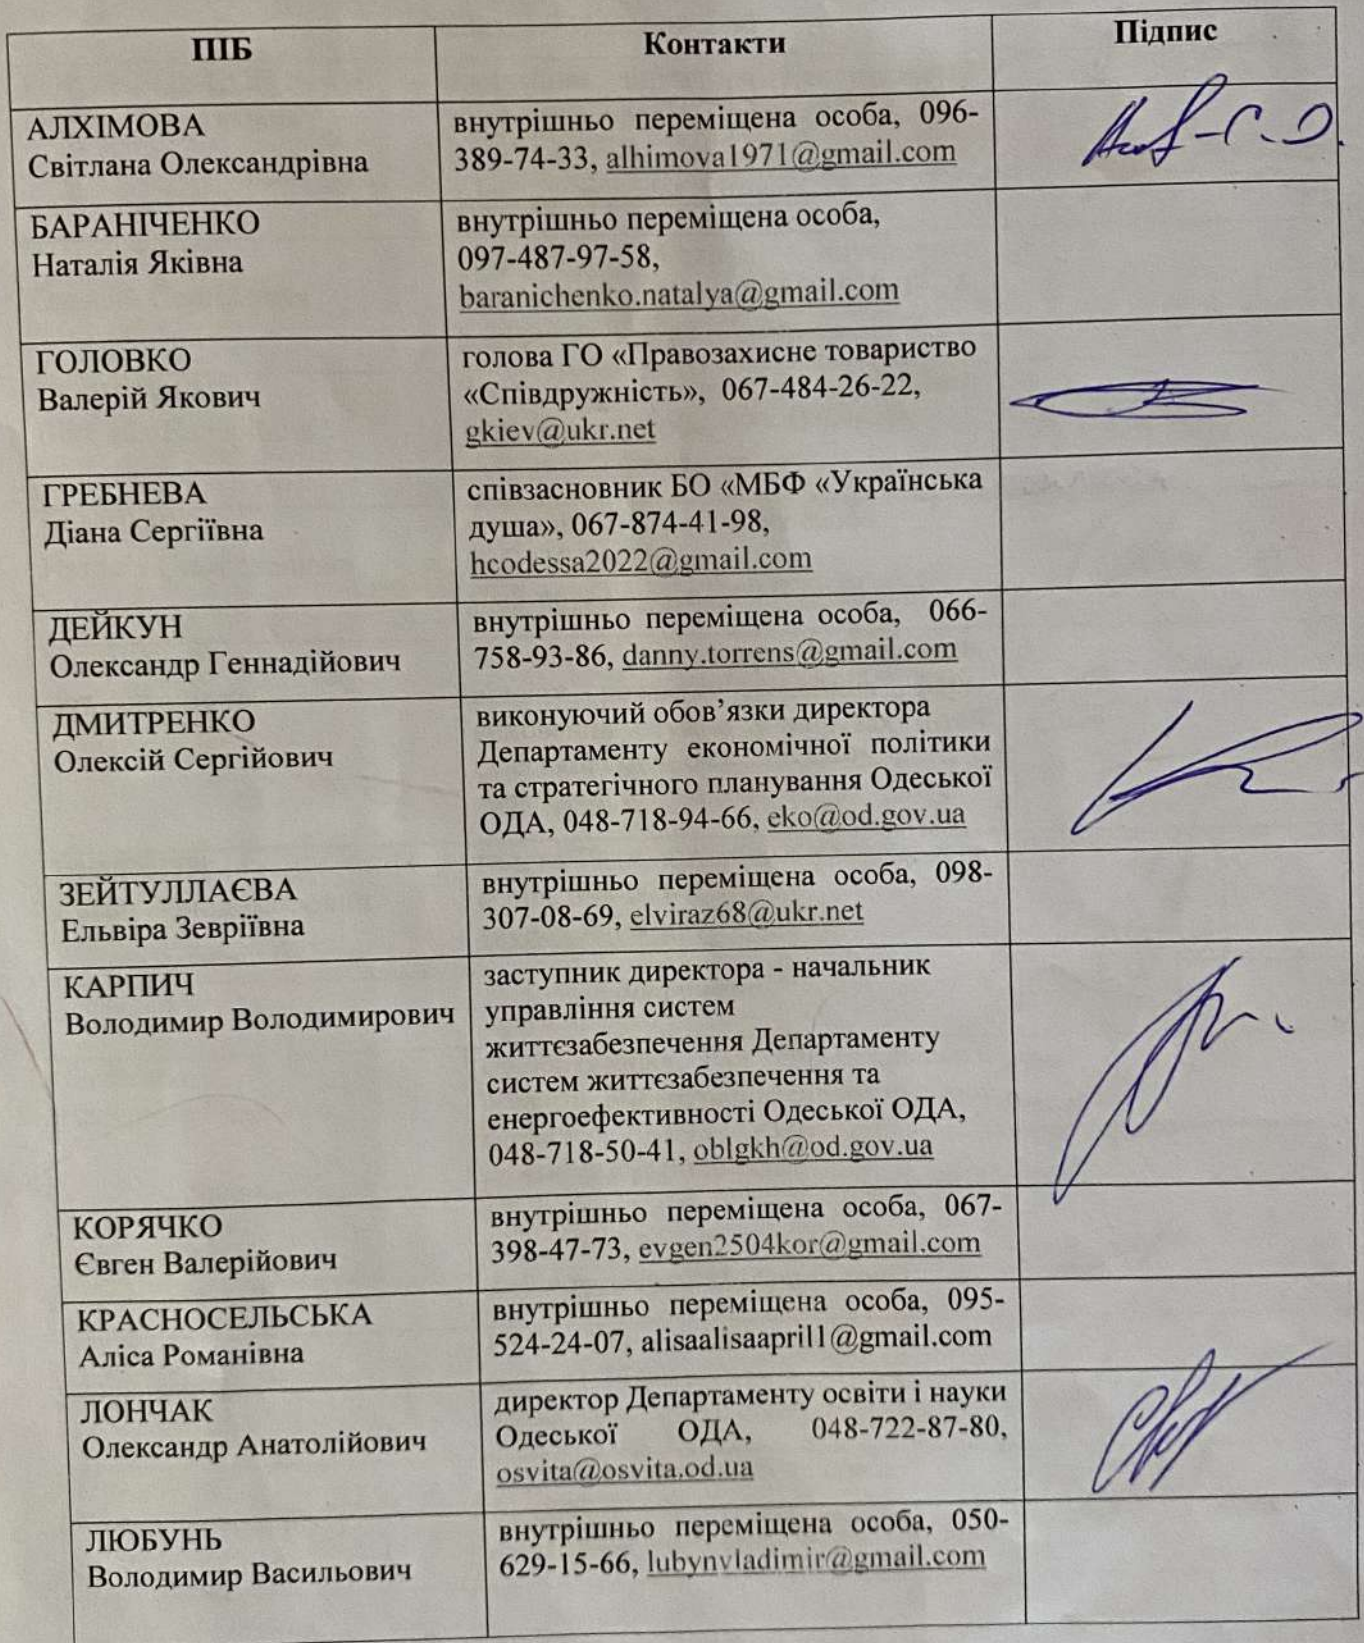 ПІБ
Контакти
Підпис
АЛХІМОВА
Світлана Олександрівна
внутрішньо переміщена особа, 096-
389-74-33, alhimova1971@gmail.com
БАРАНІЧЕНКО
Наталія Яківна
внутрішньо переміщена особа,
097-487-97-58,
baranichenko.natalya@gmail.com
ГОЛОВКО
Валерій Якович
голова ГО «Правозахисне товариство
«Співдружність», 067-484-26-22,
gkiev@ukr.net
ГРЕБНЕВА
Діана Сергіївна
співзасновник БО «МБФ «Українська
душа», 067-874-41-98,
hcodessa2022@gmail.com
ДЕЙКУН
Олександр Геннадійович
внутрішньо переміщена особа, 066-
758-93-86, danny.torrens@gmail.com
ДМИТРЕНКО
Олексій Сергійович
виконуючий обов’язки директора
Департаменту економічної політики
та стратегічного планування Одеської
ОДА, 048-718-94-66, eko@od.gov.ua
ЗЕЙТУЛЛАЄВА
Ельвіра Зевріївна
внутрішньо переміщена особа, 098-
307-08-69, elviraz68@ukr.net
КАРПИЧ
Володимир Володимирович
заступник директора - начальник
управління систем
життєзабезпечення Департаменту
систем життєзабезпечення та
енергоефективності Одеської ОДА,
048-718-50-41, oblgkh@od.gov.ua
КОРЯЧКО
Євген Валерійович
внутрішньо переміщена особа, 067-
398-47-73, evgen2504kor@gmail.com
КРАСНОСЕЛЬСЬКА
Аліса Романівна
внутрішньо переміщена особа, 095-
524-24-07, alisaalisaapril1@gmail.com
ЛОНЧАК
Олександр Анатолійович
директор Департаменту освіти і науки
Одеської ОДА, 048-722-87-80,
osvita@osvita.od.ua
ЛЮБУНЬ
Володимир Васильович
внутрішньо переміщена особа, 050-
629-15-66, lubynvladimir@gmail.com